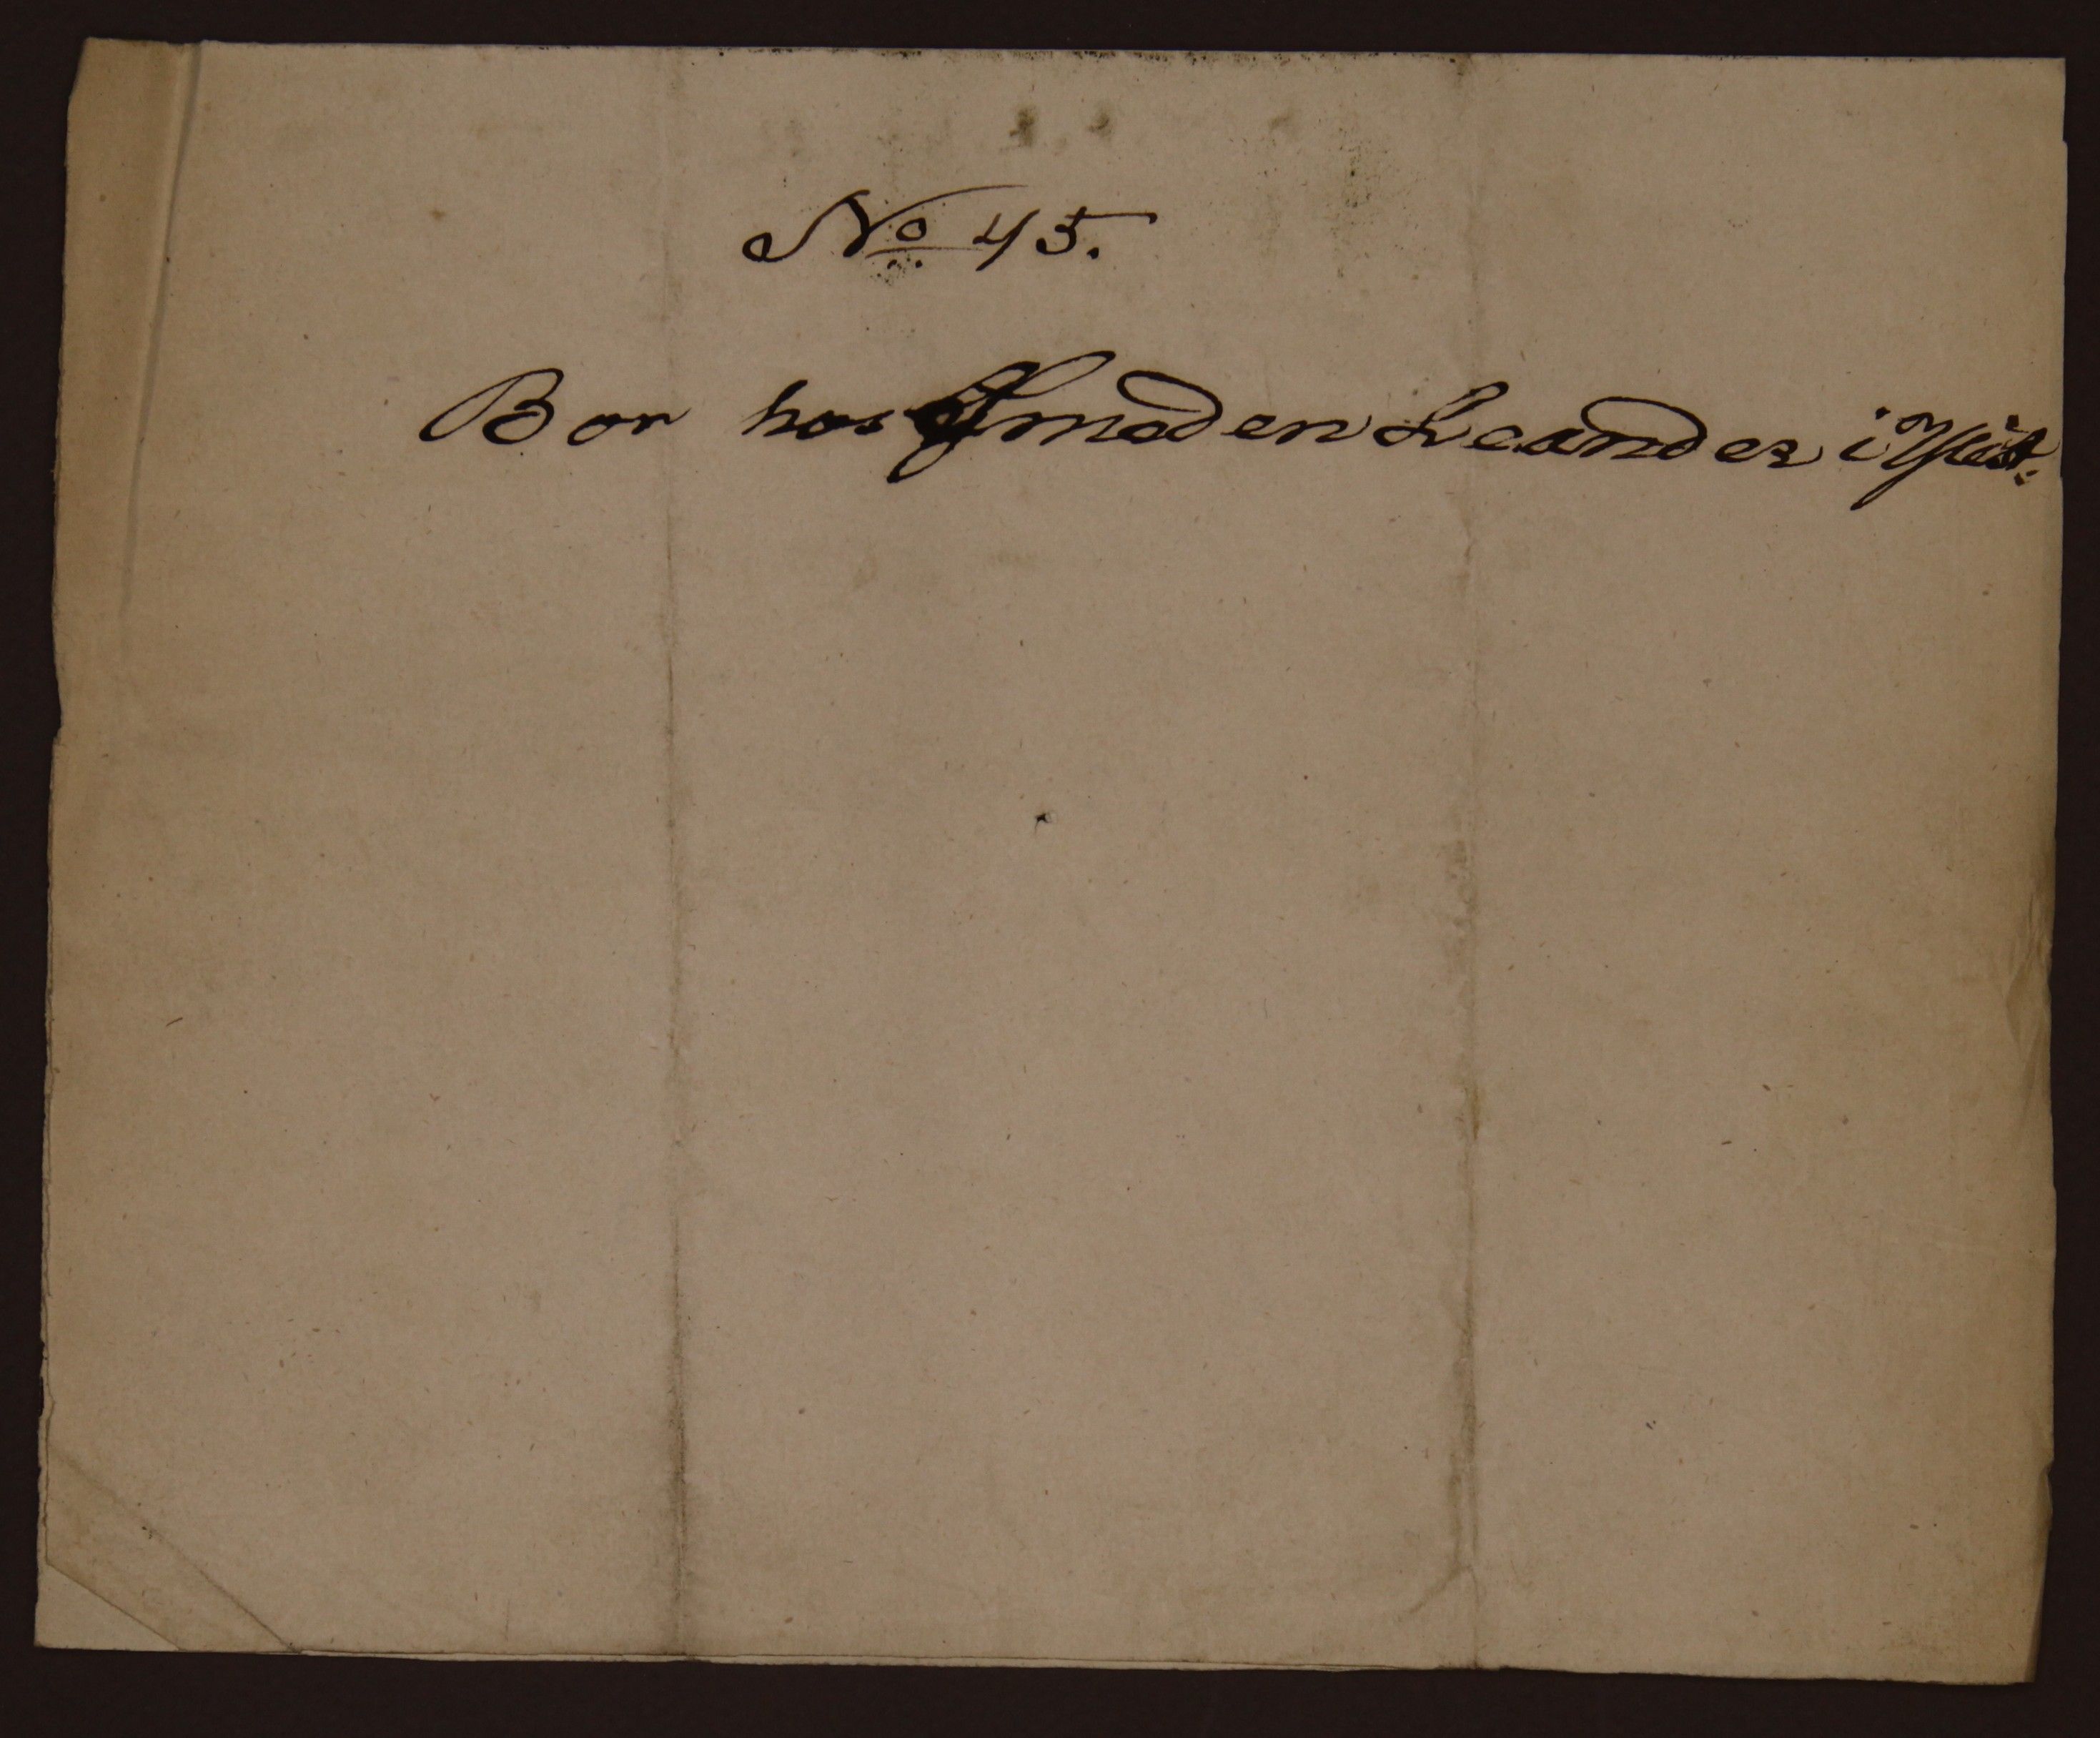 No 45.
Bor hos Smeden Leander i